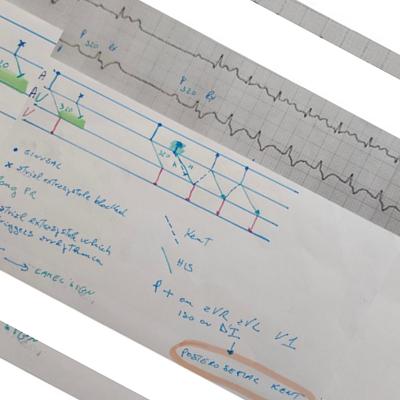 P
320 Pr
P
320 Pr
A
AV
V
320
320
• SINUSAL
x atrial extrasystole blocked
long PR
atrial extrasystole which
triggers arrhythmia
→ CAMEL SIGN
Kent
HIS
P + on aVR aVL V1
iso on DI
↓
POSTEROSEPTAL KENT